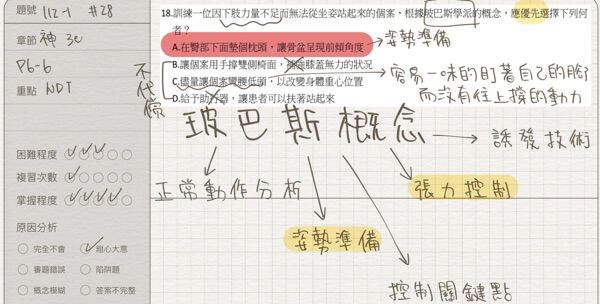 題號 112-1 #28
章節 神3C
P6-6
重點 NDT
困難程度
複習次數
掌握程度
原因分析
完全不會 粗心大意
審題錯誤 陷阱題
概念模糊 答案不完整
18.訓練一位因下肢力量不足而無法從坐姿站起來的個案，根據玻巴斯學派的概念，應優先選擇下列何
者？
A.在臀部下面墊個枕頭，讓骨盆呈現前傾角度
B.讓個案用手撐雙側椅面，彌補膝蓋無力的狀況
C.儘量讓個案彎腰低頭，以改變身體重心位置
D.給予助行器，讓患者可以扶著站起來
姿勢準備
不代償
容易一味的盯著自己的腳
而沒有往上撐的動力
玻巴斯概念
誘發技術
正常動作分析
張力控制
姿勢準備
控制關鍵點